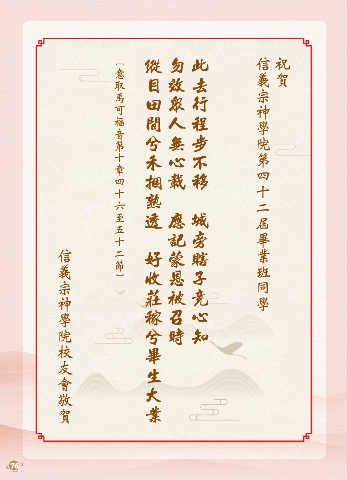 祝賀
信義宗神學院第四十二屆畢業班同學
此去行程步不移　城旁瞎子竟心知
勿效眾人無心栽　應記蒙恩被召時
縱目田間兮禾捆熟透　好收莊稼兮畢生大業
(意取馬可福音第十章四十六至五十二節)
信義宗神學院校友會敬賀